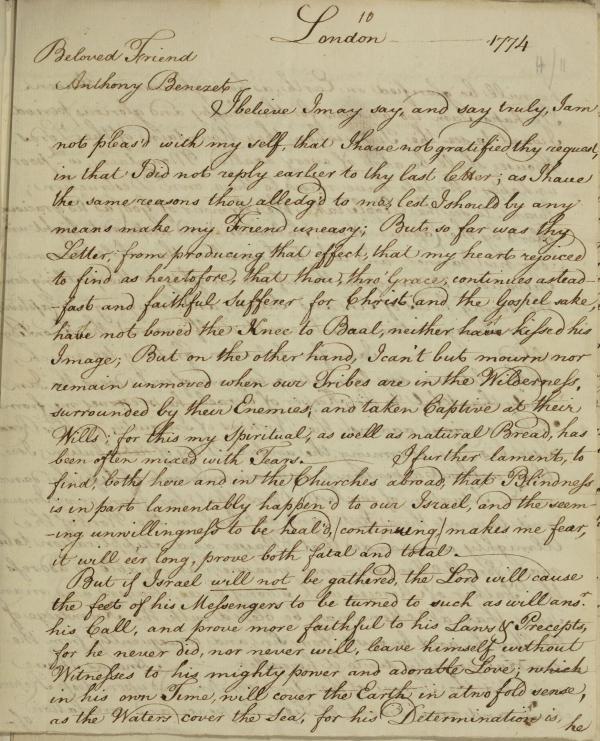 10
London 1774
Beloved Friend
Anthony Benezet
I believe I may say, and say truly, I am
not pleas'd with my self, that I have not gratified thy request,
in that I did not reply earlier to thy last letter; as I have
the same reasons thou alledg'd to me, lest I should by any
means make my Friend uneasy; But so far was thy
Letter, from producing that effect, that my heart rejoiced
to find as heretofore, that thou, thro' Grace, continues a stead-
-fast and faithful Sufferer for Christ and the Gospel sake,
have not bowed the Knee to Baal, neither have kissed his
Image; But on the other hand, I can't but mourn nor
remain unmoved when our Tribes are in the Wilderness,
surrounded by their Enemies, and taken Captive at their
Wills; for this my Spiritual, as well as natural Bread, has
been often mixed with Tears. I further lament, to
find, both here and in the Churches abroad, that Blindness
is in part lamentably happen'd to our Israel, and the seem-
-ing unwillingness to be heal'd, continuing makes me fear,
it will e'er long, prove both fatal and total.
But if Israel will not be gathered, the Lord will cause
the feet of his Messengers to be turned to such as will ansr.
his Call, and prove more faithful to his Laws & Precepts,
for he never did, nor never will, leave himself without
Witnesses to his mighty power and adorable Love; which
in his own Time, will cover the Earth, in a two fold sense,
as the Waters cover the Sea, for his Determination is,
he